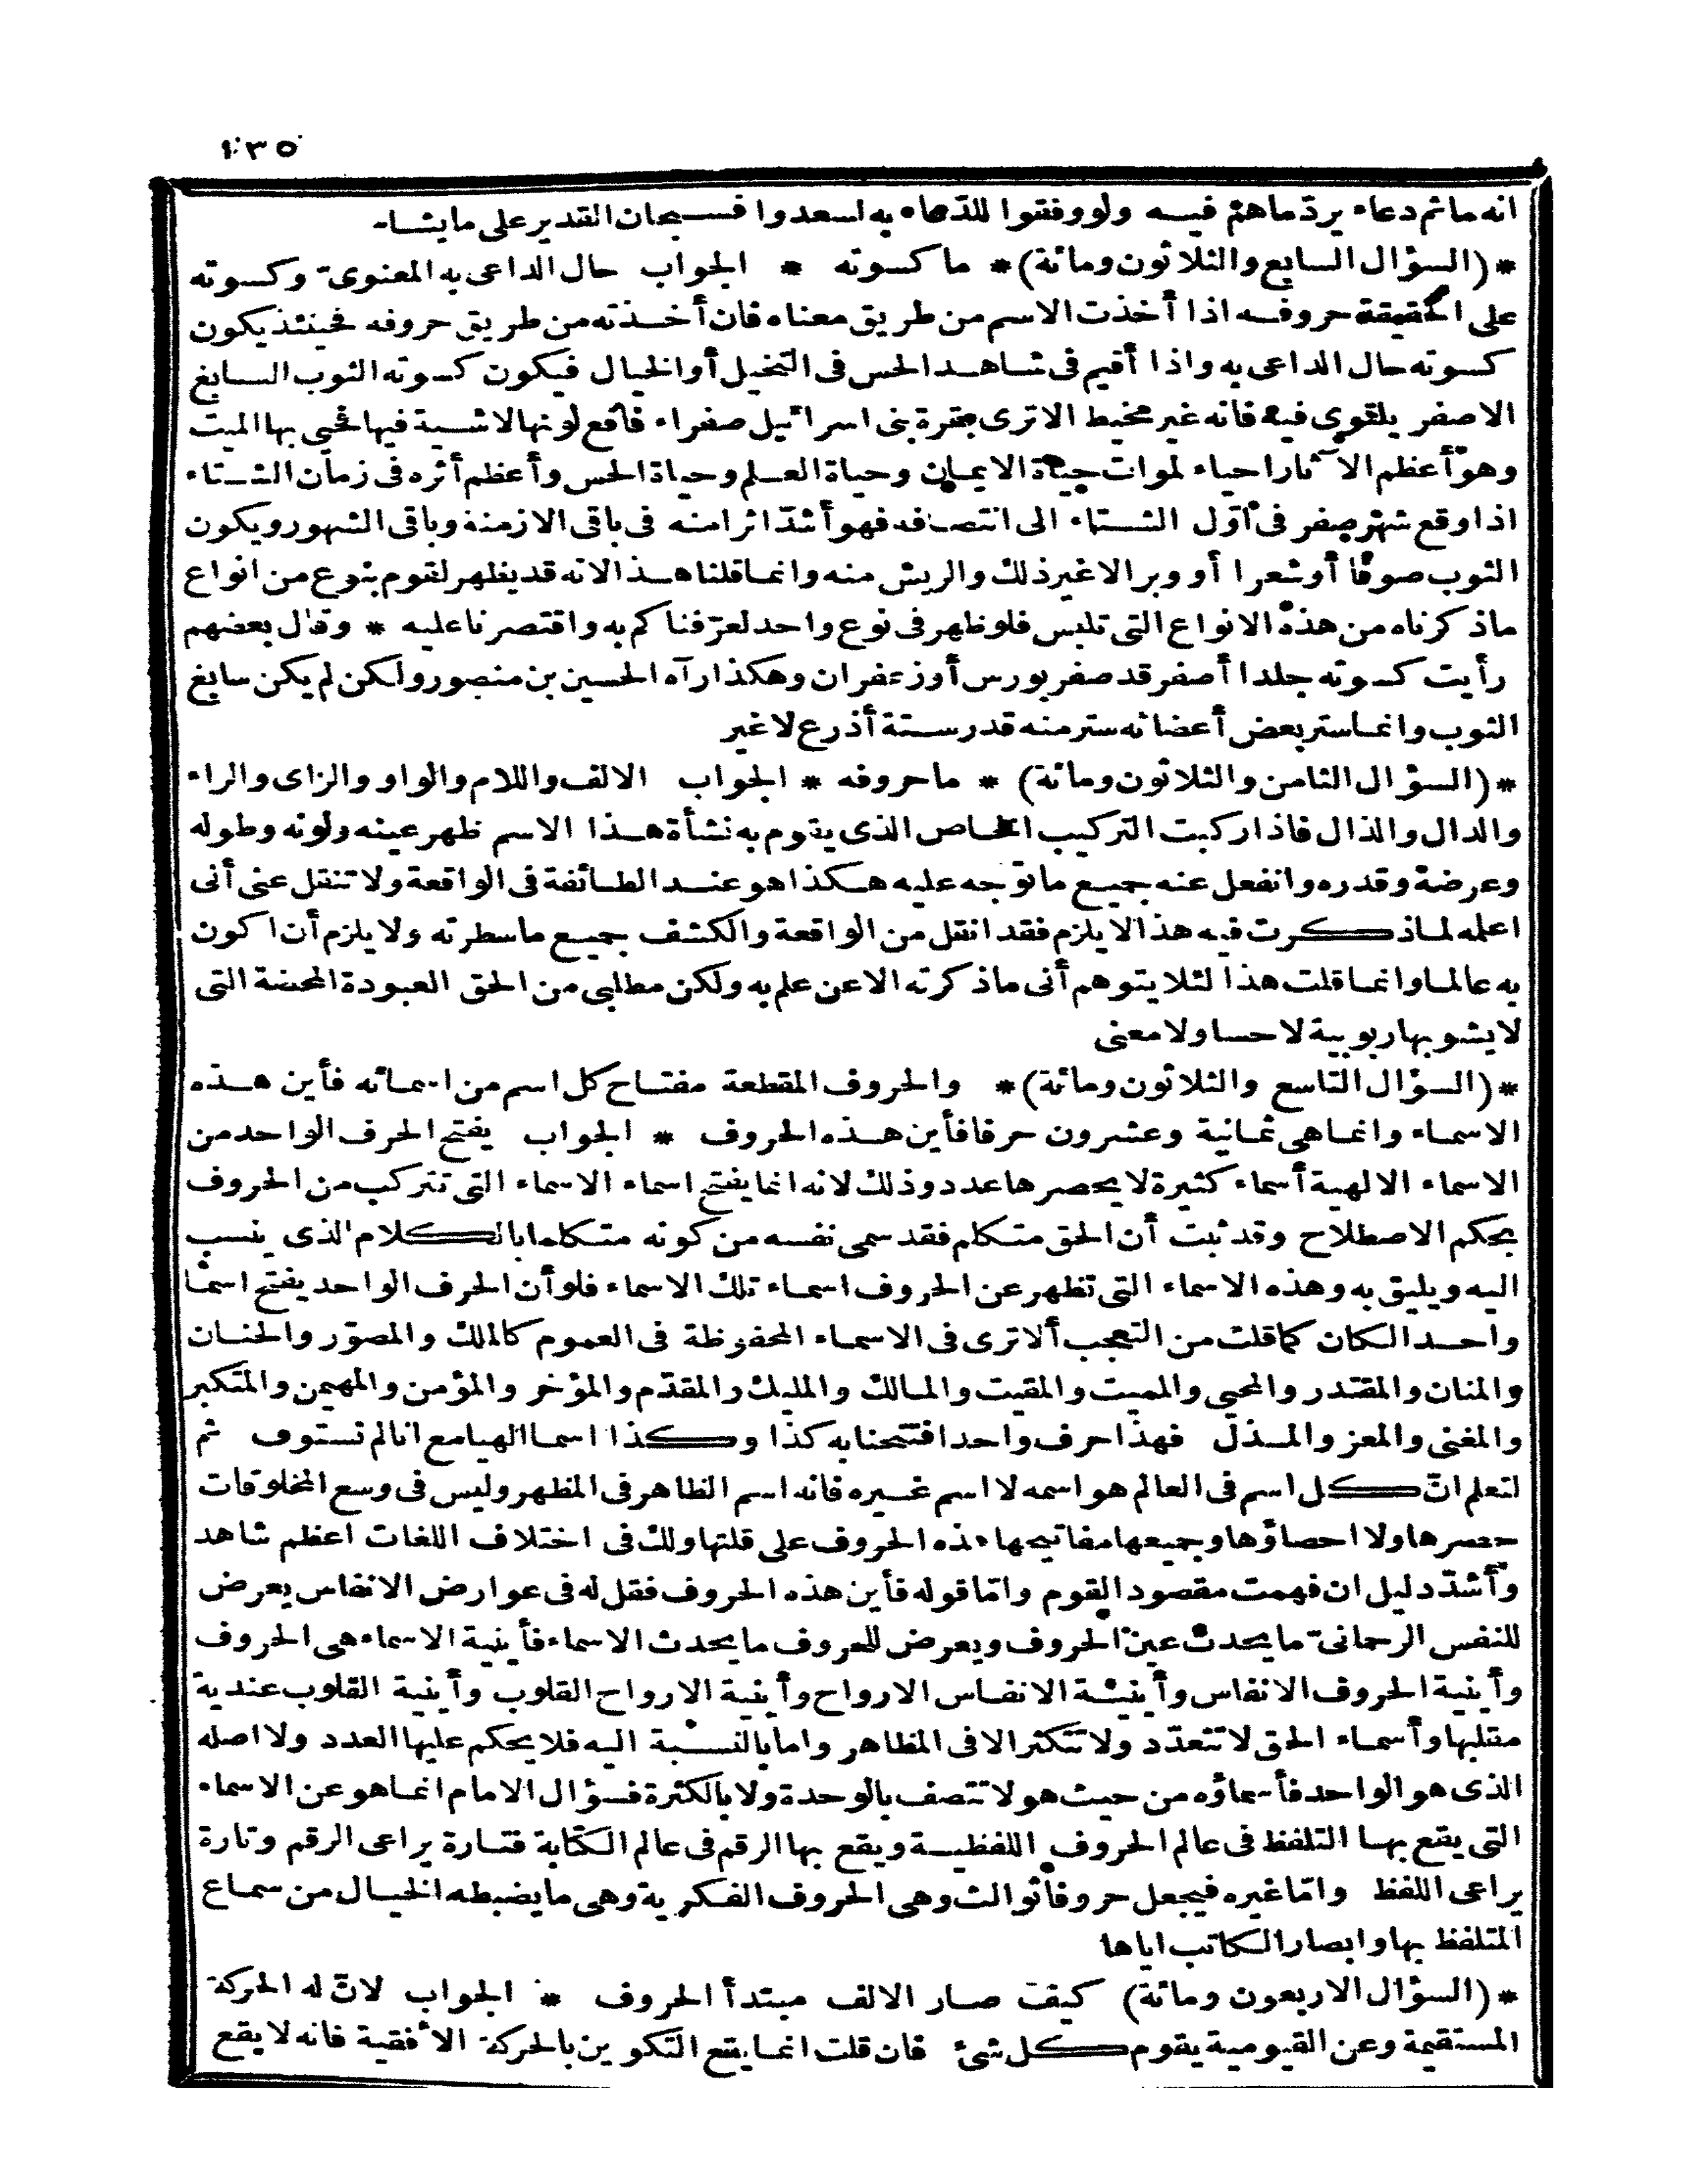 ١٣٥
انه ما ثم دعاء يردّ ما هم فيه ولو وفقوا للدّعاء به لسعدوا فسبحان القدير على ما يشاء
*(السؤال السابع والثلاثون ومائة)* ما كسوته * الجواب حال الداعى به المعنوىّ وكسوته
على الحقيقة حروفه اذا أخذت الاسم من طريق معناه فان أخذته من طريق حروفه فحينئذ يكون
كسوته حال الداعى به واذا أقيم فى شاهد الحس فى التخيل أو الخيال فيكون كسوته الثوب السابغ
الاصفر يلتوى فيه فانه غير مخيط الا ترى بقرة بنى اسرائيل صفراء فاقع لونها لا شية فيها فحيى بها الميت
وهو أعظم الآثار احياء لموات حياة الايمان وحياة العلم وحياة الحس وأعظم أثره فى زمان الشتاء
اذا وقع شهر صفر فى أوّل الشتاء الى انتصافه فهو أشدّ اثرا منه فى باقى الازمنة وباقى الشهور ويكون
الثوب صوفا أو شعرا أو وبرا لا غير ذلك والريش منه وانما قلنا هذا لانه قد يظهر لقوم بنوع من انواع
ما ذكرناه من هذه الانواع التى تلبس فلو ظهر فى نوع واحد لعرّفناكم به واقتصرنا عليه * وقال بعضهم
رأيت كسوته جلدا أصفر قد صفر بورس أو زعفران وهكذا رآه الحسين بن منصور ولكن لم يكن سابغ
الثوب وانما ستر بعض أعضائه ستر منه قدر ستة أذرع لا غير
*(السؤال الثامن والثلاثون ومائة) * ما حروفه * الجواب الالف واللام والواو والزاى والراء
والدال والذال فاذا ركبت التركيب الخاص الذى يقوم به نشأة هذا الاسم ظهر عينه ولونه وطوله
وعرضه وقدره وانفعل عنه جميع ما توجه عليه هكذا هو عند الطائفة فى الواقعة ولا تنقل عنى أنى
اعلمه لما ذكرت فيه هذا لا يلزم فقد انقل من الواقعة والكشف جميع ما سطرته ولا يلزم أن اكون
به عالما وانما قلت هذا لئلا يتوهم أنى ما ذكرته الا عن علم به ولكن مطلبى من الحق العبودة المحضة التى
لا يشوبها ربوبية لا حسا ولا معنى
*(السؤال التاسع والثلاثون ومائة)* والحروف المقطعة مفتاح كل اسم من اسمائه فأين هذه
الاسماء وانما هى ثمانية وعشرون حرفا فأين هذه الحروف * الجواب يفتح الحرف الواحد من
الاسماء الالهية أسماء كثيرة لا يحصرها عدد وذلك لانه انما يفتح اسماء الاسماء التى تتركب من الحروف
بحكم الاصطلاح وقد ثبت أن الحق متكلم فقد سمى نفسه من كونه متكلما بالكلام الذى ينسب
اليه ويليق به وهذه الاسماء التى تظهر عن الحروف اسماء تلك الاسماء فلو أن الحرف الواحد يفتح اسما
واحدا لكان كما قلت من التعجب ألا ترى فى الاسماء المحفوظة فى العموم كالملك والمصوّر والحنان
والمنان والمقتدر والمحيى والمميت والمقيت والمالك والمليك والمقدّم والمؤخر والمؤمن والمهيمن والمتكبر
والمغنى والمعز والمذلّ فهذا حرف واحد افتتحنا به كذا وكذا اسما الهيا مع انا لم نستوف ثم
لتعلم انّ كل اسم فى العالم هو اسمه لا اسم غيره فانه اسم الظاهر فى المظهر وليس فى وسع المخلوقات
حصرها ولا احصاؤها وجميعها مفاتيحها هذه الحروف على قلتها ولك فى اختلاف اللغات اعظم شاهد
وأشدّ دليل ان فهمت مقصود القوم وامّا قوله فأين هذه الحروف فقل له فى عوارض الانفاس يعرض
للنفس الرحمانىّ ما يحدث عين الحروف ويعرض للحروف ما يحدث الاسماء فأينية الاسماء هى الحروف
وأينية الحروف الانفاس وأينية الانفاس الارواح وأينية الارواح القلوب وأينية القلوب عندية
مقلبها وأسماء الحق لا تتعدّد ولا تتكثر الا فى المظاهر واما بالنسبة اليه فلا يحكم عليها العدد ولا اصله
الذى هو الواحد فأسماؤه من حيث هو لا تتصف بالوحدة ولا بالكثرة فسؤال الامام انما هو عن الاسماء
التى يقع بها التلفظ فى عالم الحروف اللفظية ويقع بها الرقم فى عالم الكتابة فتارة يراعى الرقم وتارة
يراعى اللفظ وامّا غيره فيجعل حروفا ثوالث وهى الحروف الفكرية وهى ما يضبطه الخيال من سماع
المتلفظ بها وابصار الكاتب اياها
*(السؤال الاربعون ومائة) كيف صار الالف مبتدأ الحروف * الجواب لانّ له الحركة
المستقيمة وعن القيومية يقوم كل شئ فان قلت انما يقع التكوين بالحركة الأفقية فانه لا يقع